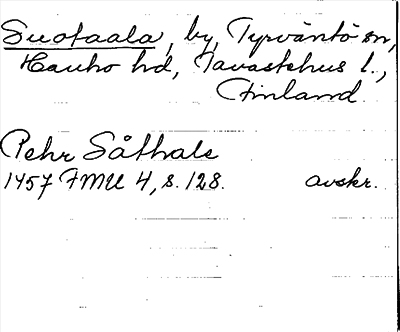 Suotaala, by, Tyrväntö sn,
Hauho hd, Tavastehus l.,
Finland
Pehr Såthale
1457 FMU 4, s. 128. avskr.